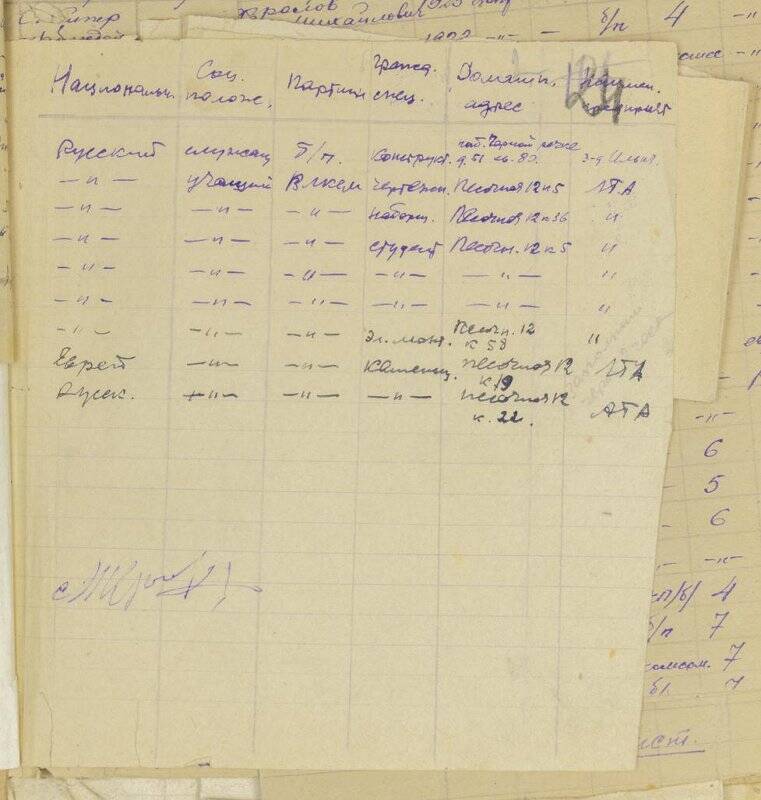 Михайлович
б/п 4 -"-
124
Национальн. Соц. полож. Партийн. Гражд. спец. Домашн. адрес Наимен. предприят
Русский служащ Б/п. Конструкт. наб. Черной речки д. 51 кв. 82. з-д
-"- учащий ВЛКСМ Чертежн. Песочная 12 к 5 ЛТА
-"- -"- -"- наборщ. Песочная 12 к 36 "
-"- -"- -"- студент Песочн. 12 к 5 "
-"- -"- -"- -"- -"- "
-"- -"- -"- -"- -"- "
-"- -"- -"- Эл. монт. Песочн. 12 к 58 "
Еврей -"- -"- Каменщ. Песочная 12 к 19 ЛТА
Русск. -"- -"- -"- Песочная 12 к. 22. ЛТА
-"-
6
5
6
-"-
4
б/п 7
7